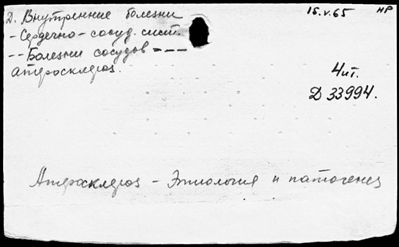 2. Внутренние болезни
15.V.65
НР
- Сердечно-сосуд. сист.
-- Болезни сосудов ---
атеросклероз.
4ит.
Д 33994.
Атеросклероз - Этиология и патогенез